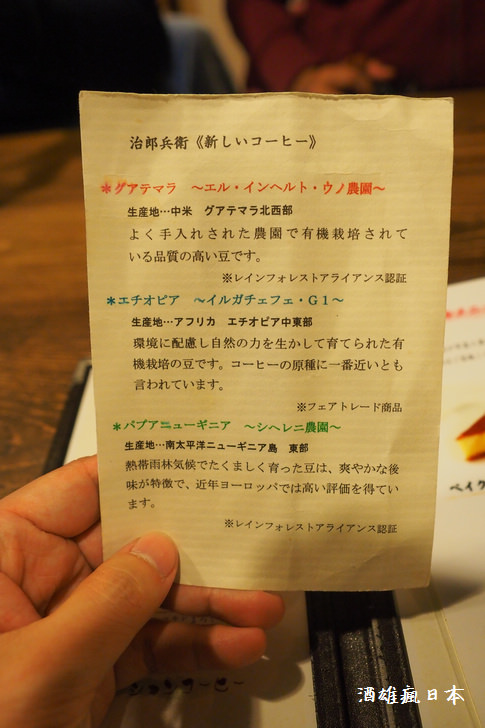 治郎兵衛《新しいコーヒー》
＊グアテマラ　～エル・インヘルト・ウノ農園～
生産地…中米　グアテマラ北西部
よく手入れされた農園で有機栽培されて
いる品質の高い豆です。
※レインフォレストアライアンス認証
＊エチオピア　～イルガチェフェ・G1～
生産地…アフリカ　エチオピア中東部
環境に配慮し自然の力を生かして育てられた有
機栽培の豆です。コーヒーの原種に一番近いとも
言われています。
※フェアトレード商品
＊パプアニューギニア　～シヘレニ農園～
生産地…南太平洋ニューギニア島　東部
熱帯雨林気候でたくましく育った豆は、爽やかな後
味が特徴で、近年ヨーロッパでは高い評価を得てい
ます。
※レインフォレストアライアンス認証
ベイク
酒雄瘋日本